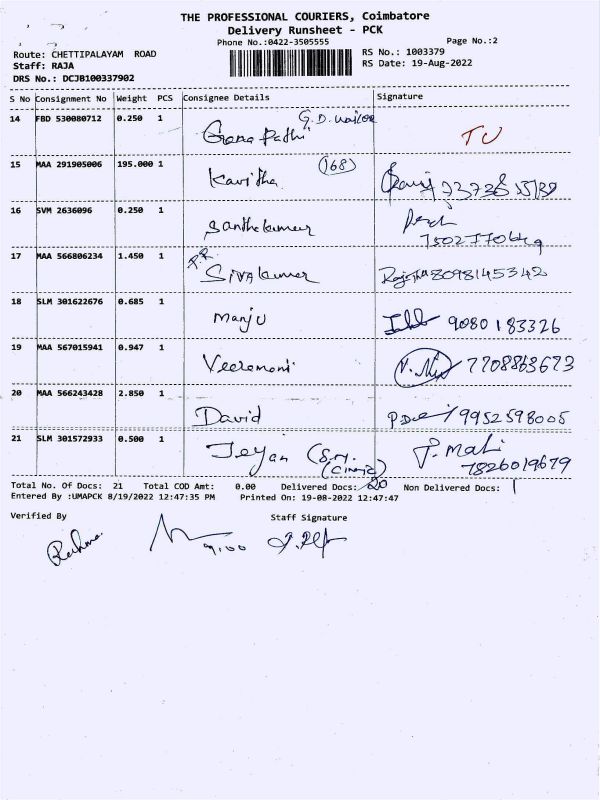 THE PROFESSIONAL COURIERS, Coimbatore
Delivery Runsheet - PCK
Phone No.:0422-3505555
Page No.:2
Route: CHETTIPALAYAM ROAD
Staff: RAJA
DRS No.: DCJB100337902
RS No.: 1003379
RS Date: 19-Aug-2022
S No Consignment No Weight PCS Consignee Details Signature
14 FBD 530080712 0.250 1 Ganapathi G.D. TU
15 MAA 291905006 195.000 1 Kavitha (168)
16 SVM 2636096 0.250 1 Santhakumar
17 MAA 566806234 1.450 1 SIVAkumar 8098145342
18 SLM 301622676 0.685 1 Manju 9080183326
19 MAA 567015941 0.947 1 Veeramani 7708863673
20 MAA 566243428 2.850 1 David 9952598005
21 SLM 301572933 0.500 1 Jeyan J. Mali 7826019679
Total No. Of Docs: 21 Total COD Amt: 0.00 Delivered Docs: 20 Non Delivered Docs: 1
Entered By :UMAPCK 8/19/2022 12:47:35 PM Printed On: 19-08-2022 12:47:47
Verified By Staff Signature
9.00